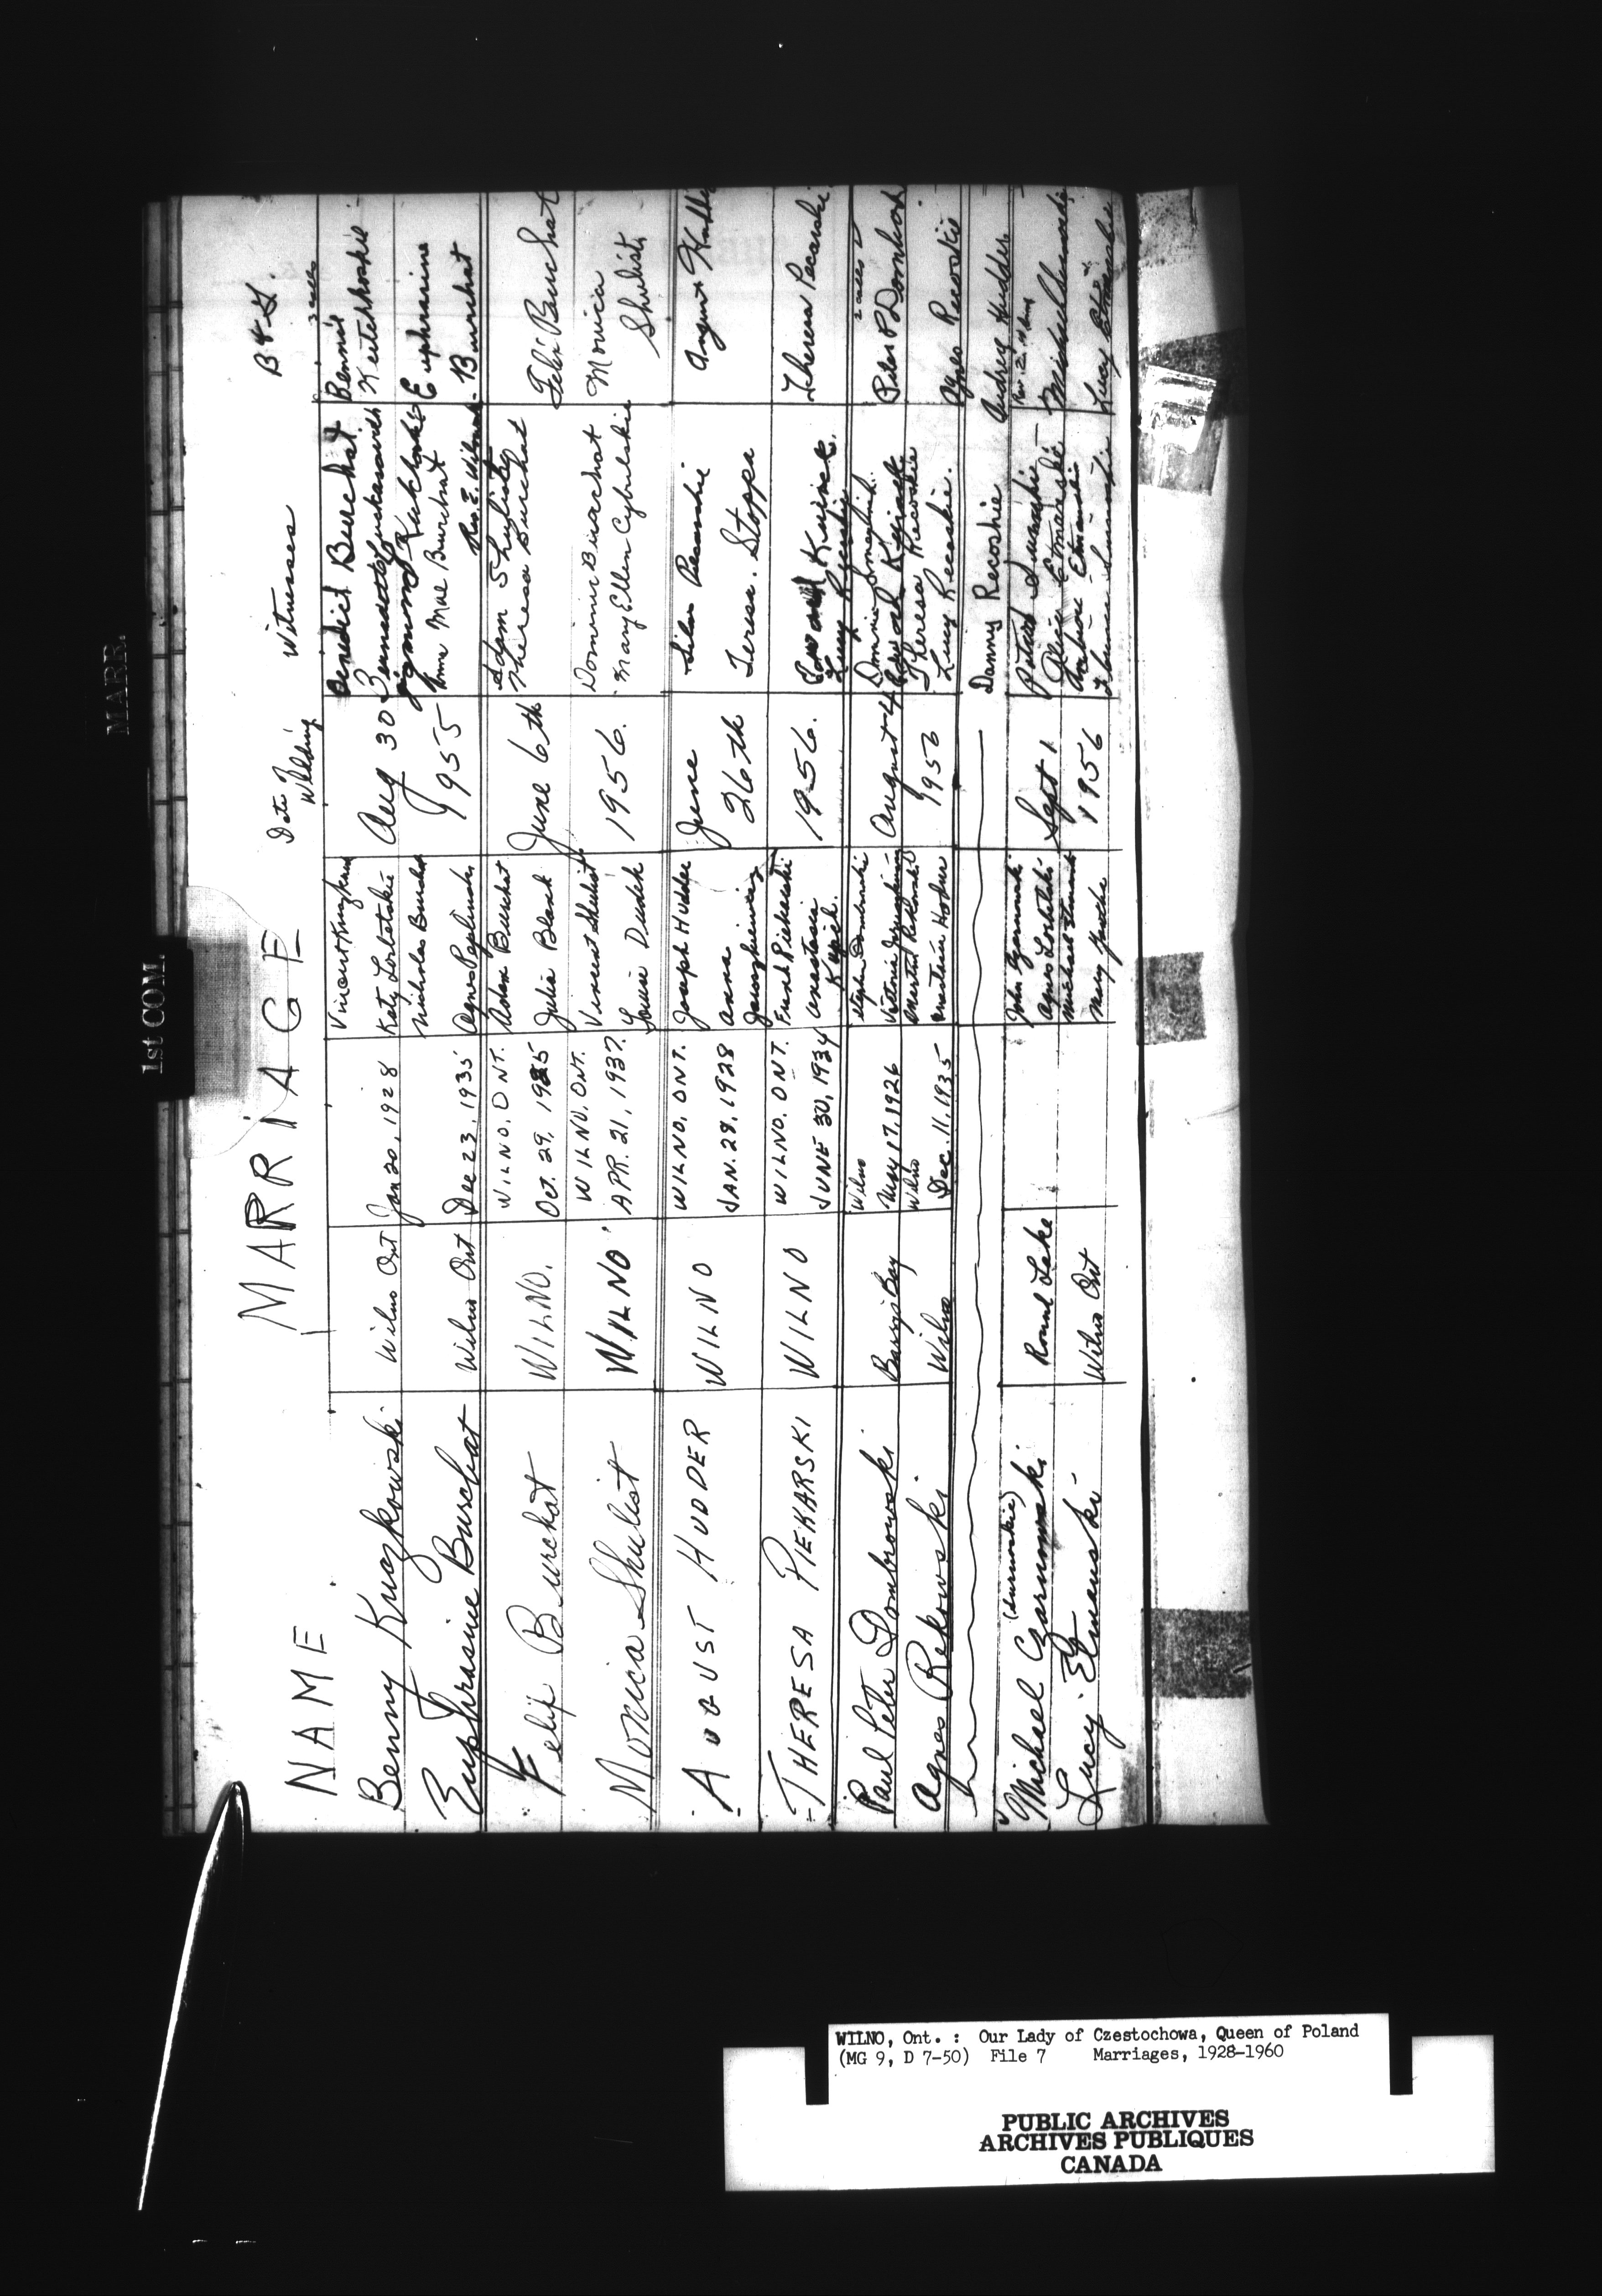 MARR.
1st COM.
MARRIAGE
NAME
Date Wedding
Witnesses
B & G.
Benny Knazkowski
Wilno Ont
Jan 20, 1928
Vincent
Katy Lorbetskie
Aug 30
1955
Benedict Burchat
Bernadette
3 calls
Bennie
Euphrasine Burchat
Wilno Ont
Dec 23, 1935
Nicholas Burchat
Agnes Peplinski
Anne Mae Burchat
Euphrasine
Burchat
Felix Burchat
WILNO.
WILNO, ONT.
Oct. 29, 1925
Adam Burchat
Julia Blank
June 6th
1956.
Adam Shulist
Theresa Burchat
Felix Burchat
Monica Shulist
WILNO
WILNO, ONT.
APR. 21, 1937.
Vincent Shulist
Louise Dudek
Dominic Burchat
Mary Ellen Cybulskie
Monica
Shulist
AUGUST HUDDER
WILNO
WILNO, ONT.
JAN. 28, 1928
Joseph Hudder
Anna
June
26th
1956.
Teresa Stoppa
August
THERESA PIEKARSKI
WILNO
WILNO, ONT.
JUNE 30, 1934
Frank Piekarski
Anastasia
Kupik
Theresa
Paul Peter Dombrowski
Barry's Bay
Wilno
May 17, 1926
Stephen Dombroski
Victoria
August 4
1956
2 calls
Peter P
Agnes Rekowski
Wilno
Wilno
Dec. 11, 1935
Martin Rekowski
Theresa Recoskie
Lucy Recoskie.
Agnes Recoskie
Danny Recoskie
Audrey Hudder
Michael Czarnowski
Round Lake
John
Agnes Lorbetski
Sept 1
1956
Alice Etmanski
Michael
Lucy Etmanski
Wilno Ont
Michael Etmanski
Mary
Ambrose Etmanski
Lucy
WILNO, Ont. : Our Lady of Czestochowa, Queen of Poland
(MG 9, D 7-50) File 7 Marriages, 1928-1960
PUBLIC ARCHIVES
ARCHIVES PUBLIQUES
CANADA